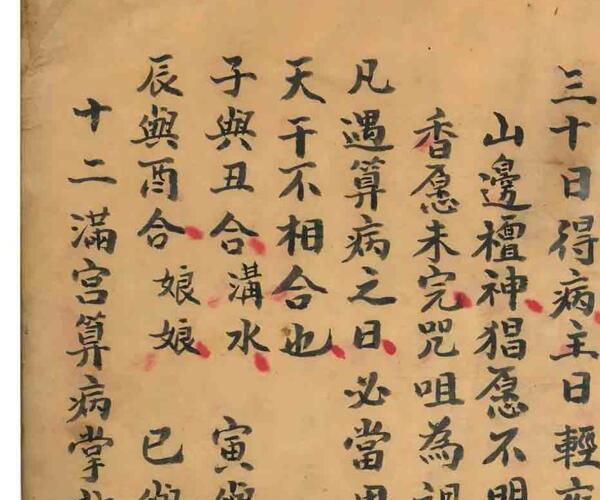 三十日得病主日輕
山邊檀神猖愿不明
香愿未完咒咀為
凡遇算病之日必當
天干不相合也
子與丑合溝水 寅
辰與酉合娘娘 已
十二滿宮算病掌